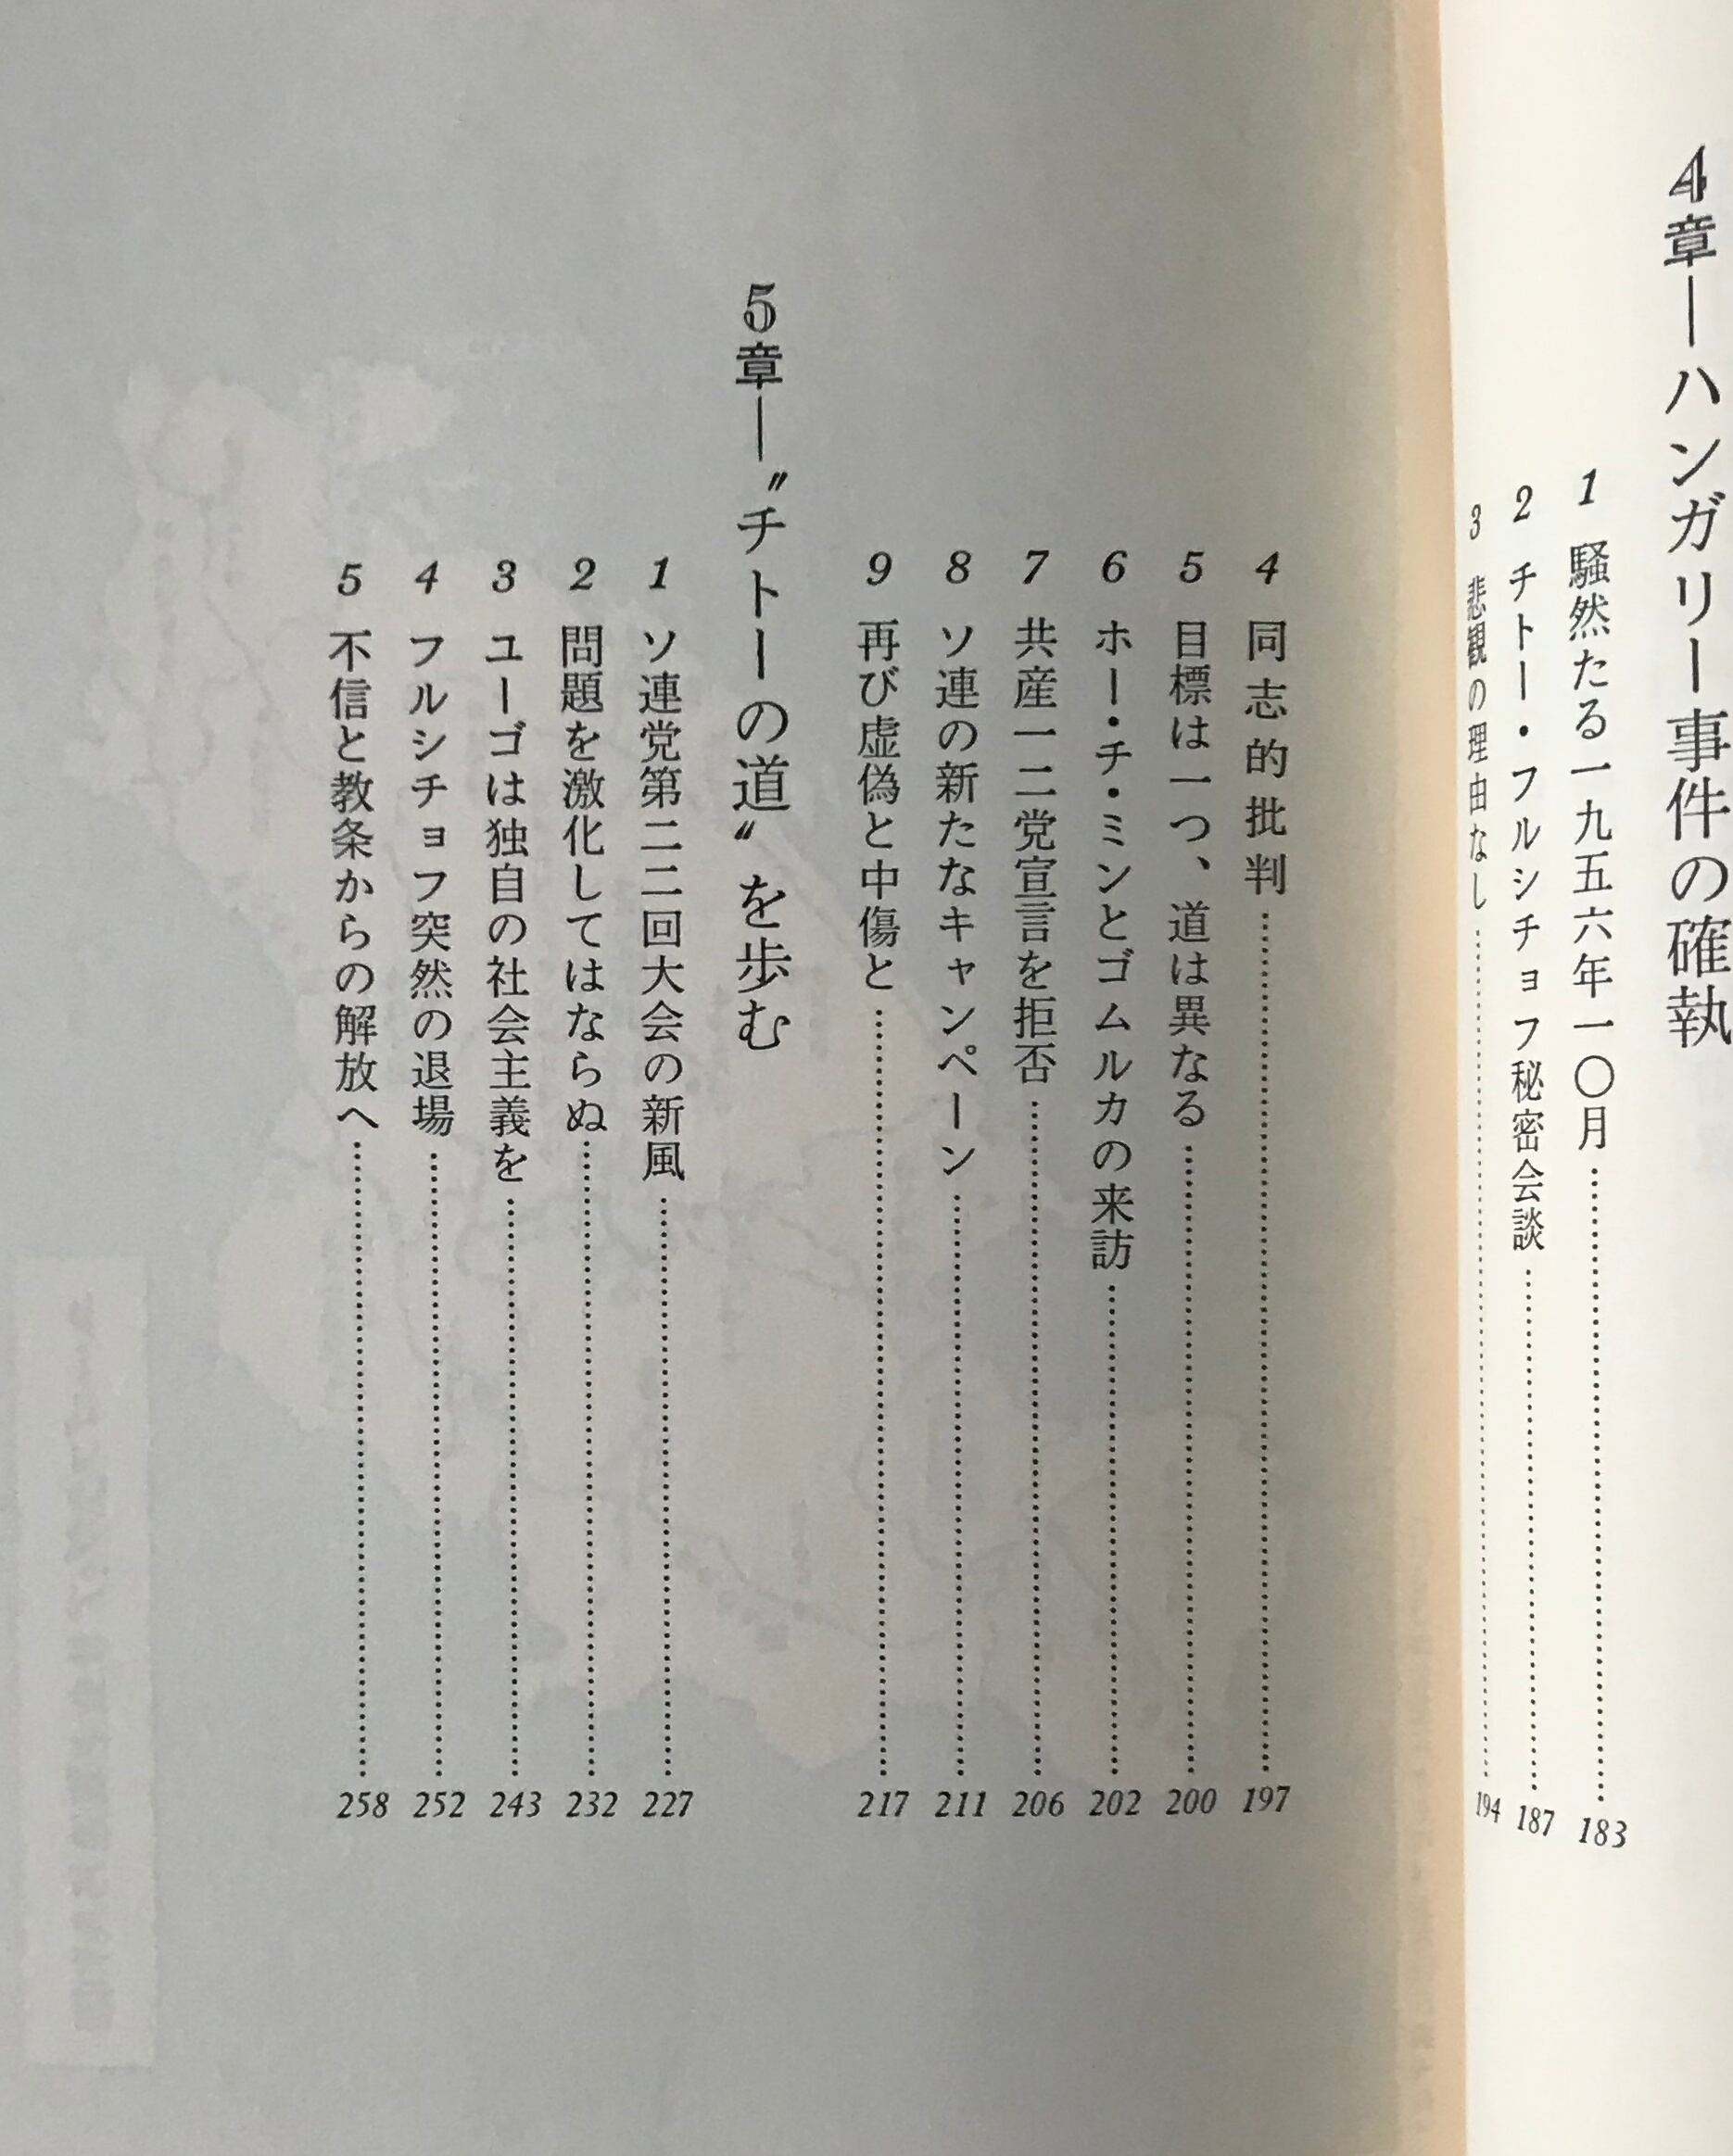 4章―ハンガリー事件の確執
1 騒然たる一九五六年一〇月……183
2 チトー・フルシチョフ秘密会談……187
3 悲観の理由なし……194
4 同志的批判……197
5 目標は一つ、道は異なる……200
6 ホー・チ・ミンとゴムルカの来訪……202
7 共産一二党宣言を拒否……206
8 ソ連の新たなキャンペーン……211
9 再び虚偽と中傷と……217
5章―〝チトーの道〟を歩む
1 ソ連党第二二回大会の新風……227
2 問題を激化してはならぬ……232
3 ユーゴは独自の社会主義を……243
4 フルシチョフ突然の退場……252
5 不信と教条からの解放へ……258